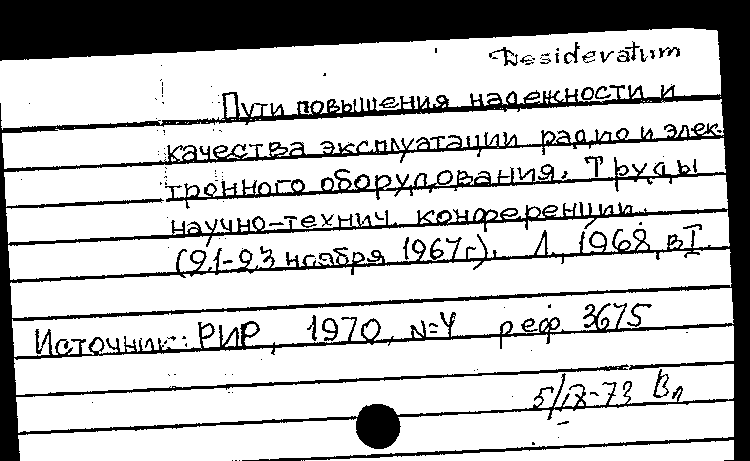 Desideratum
Пути повышения надежности и
качества эксплуатации радио и элек-
тронного оборудования. Труды
научно-технич. конференции.
(21-23 ноября 1967г). Л., 1968, вI.
Источник: РИР, 1970, N=4 реф. 3675
5/IX-73 Вл